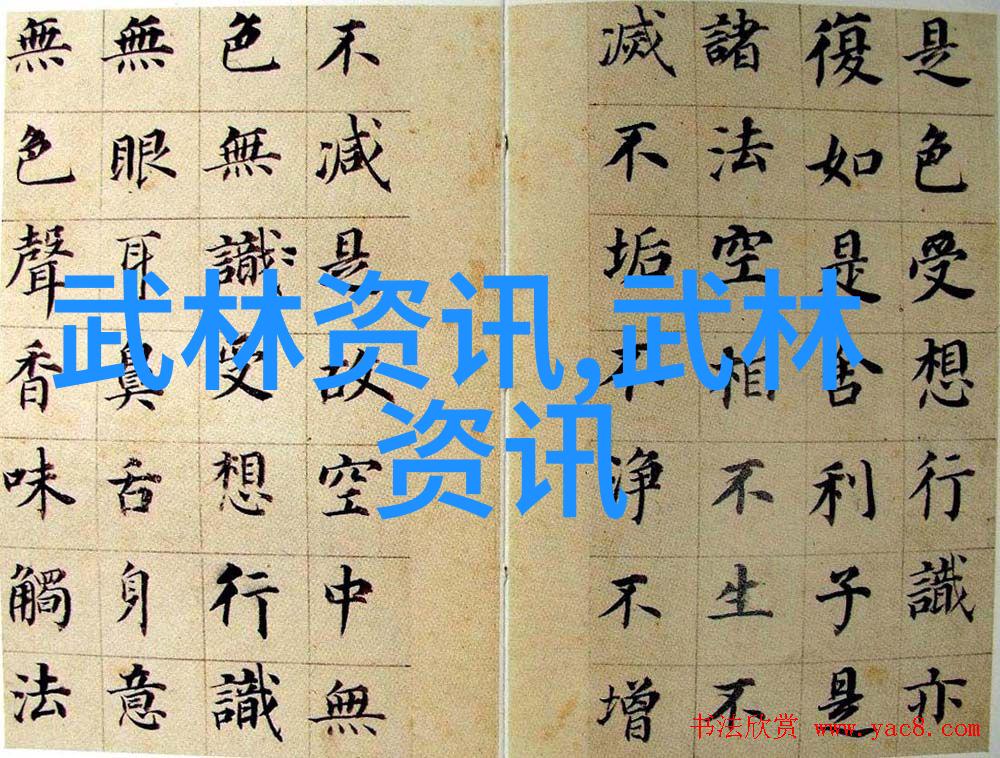 是色受想行識亦
復如是舍利子是
諸法空相不生不
滅不垢不淨不增
不減是故空中無
色無識受想行識
無眼耳鼻舌身意
無色聲香味觸法
武林资讯,武林
资讯
书法欣赏 www.yac8.com